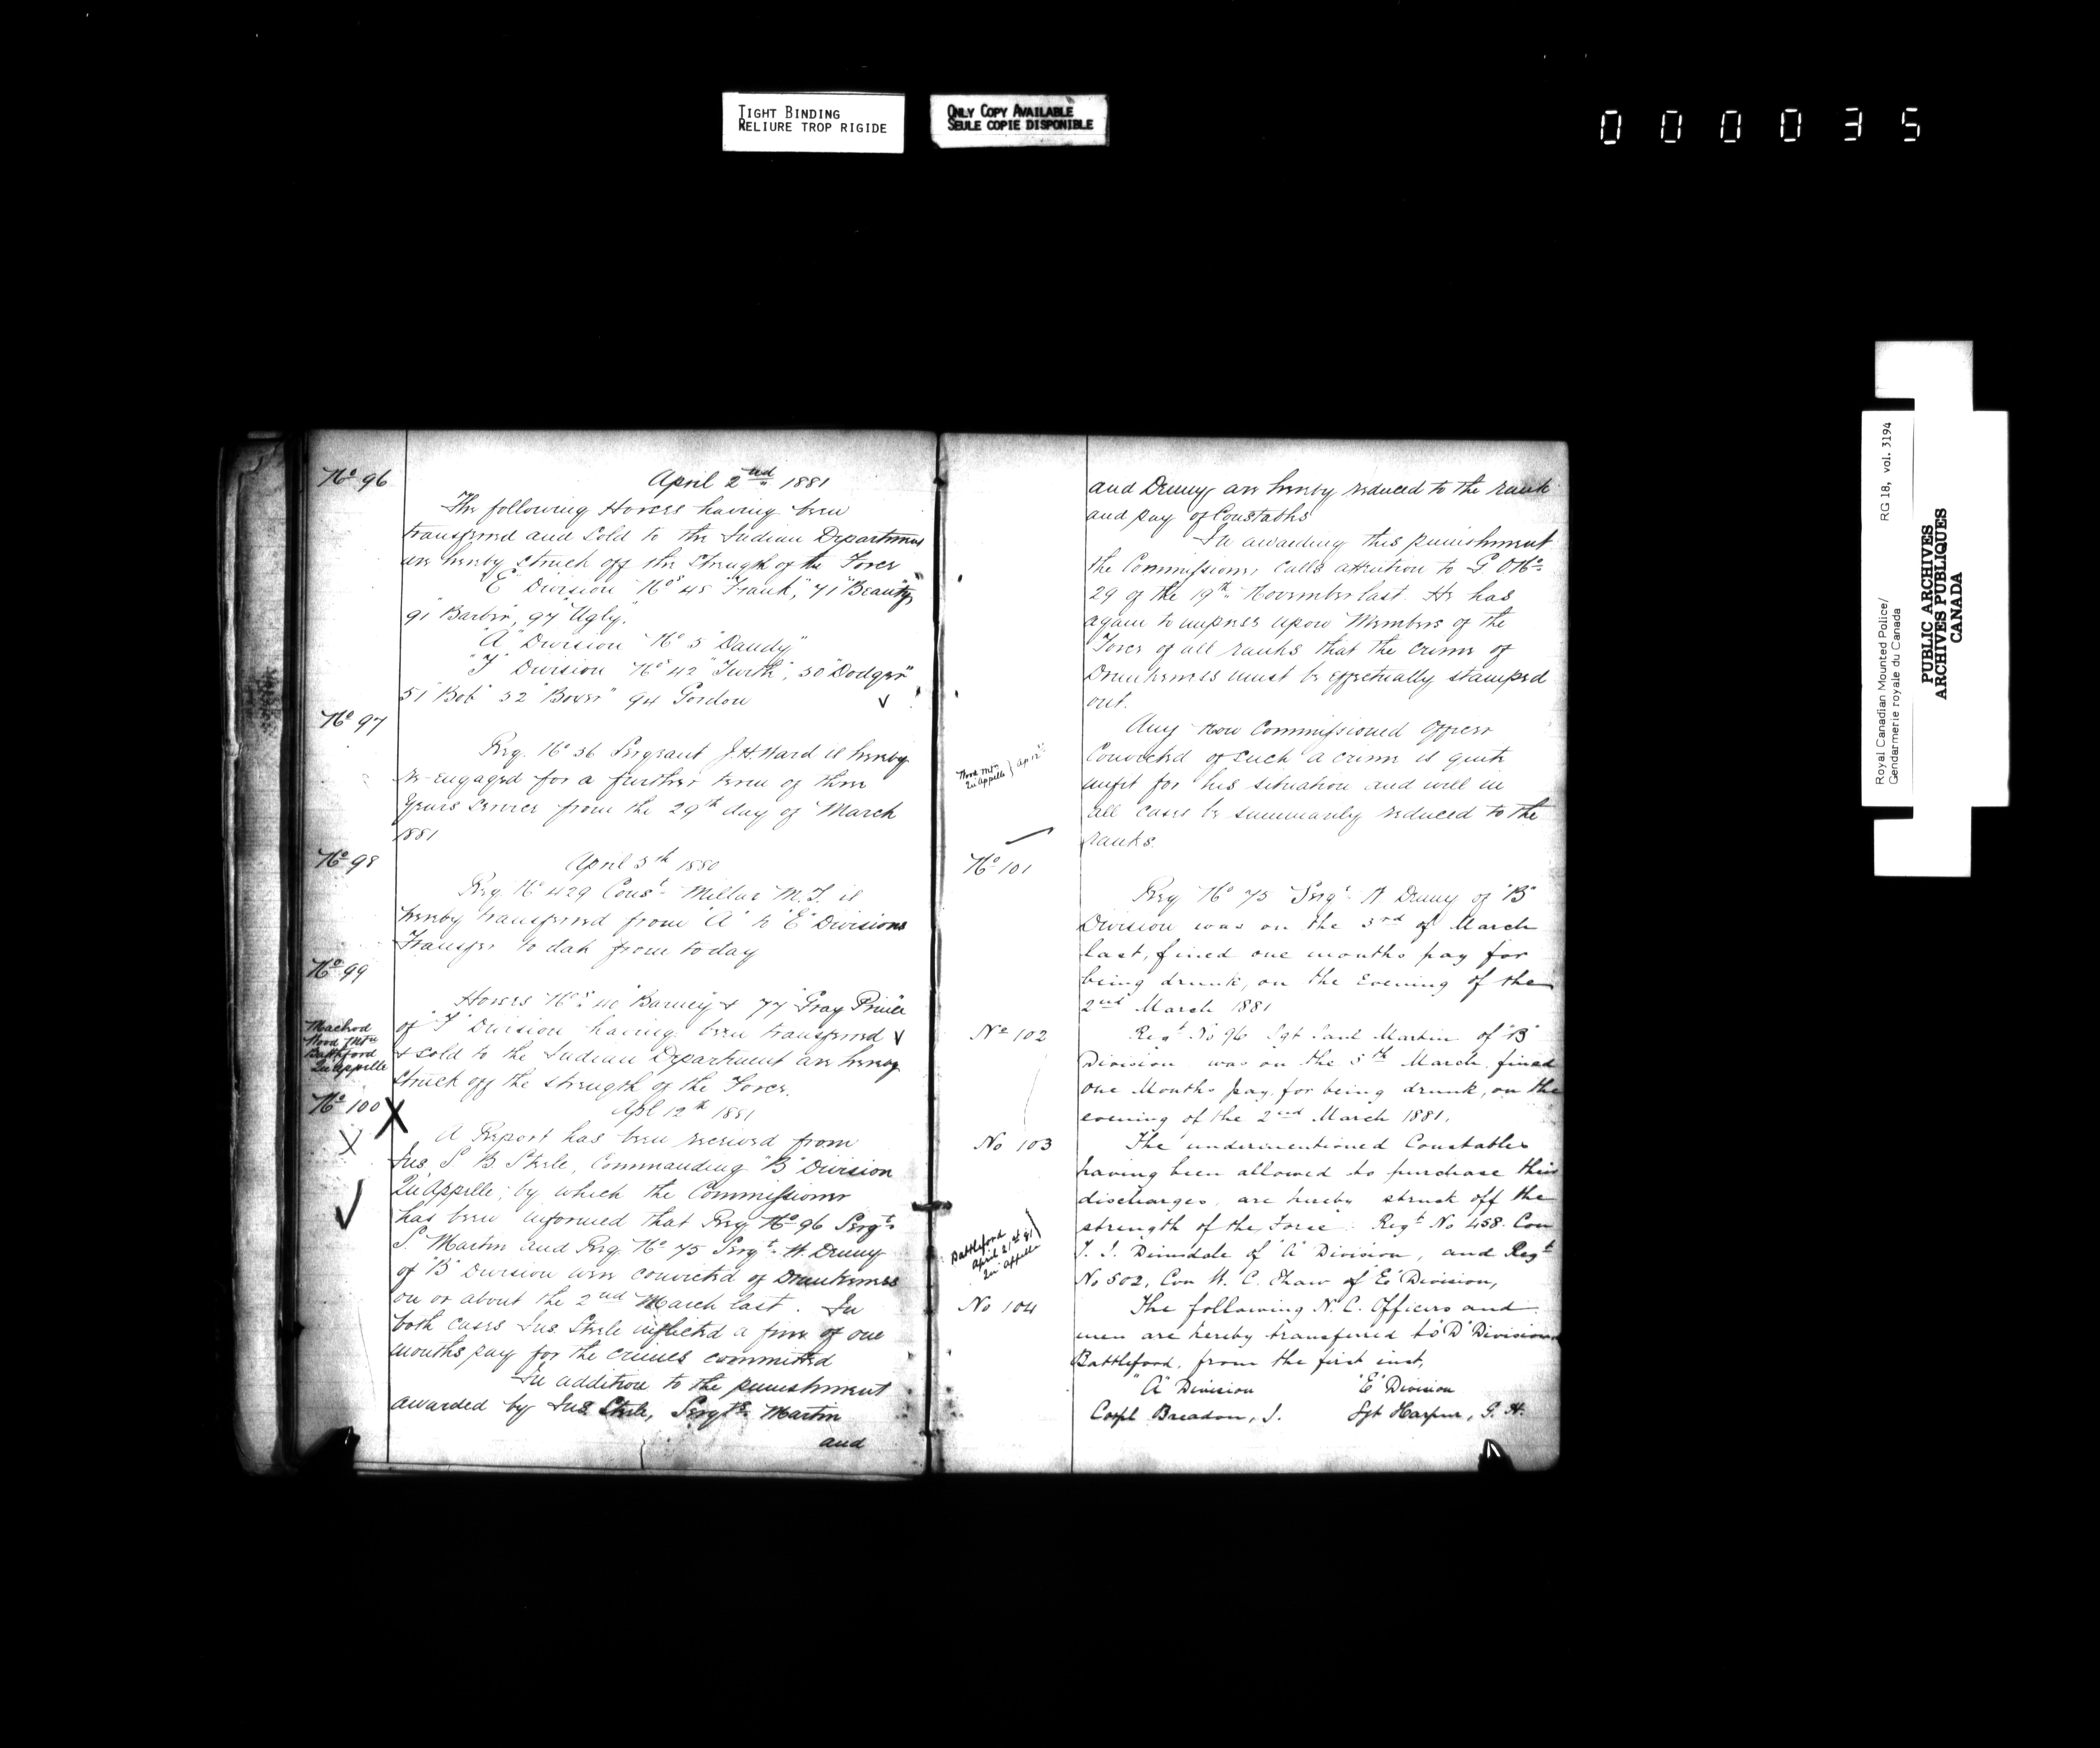 TIGHT BINDING
RELIURE TROP RIGIDE
ONLY COPY AVAILABLE
SEULE COPIE DISPONIBLE
000035
No 96
April 2nd 1881
The following Horses having been
transferred and sold to the Indian Department
are hereby struck off the Strength of the Force
"E" Division Nos 45 "Frank", 71 "Beauty",
91 "Barber", 97 "Ugly".
"A" Division No 5 "Dandy"
"F" Division Nos 42 "Forth", 50 "Dodger"
51 "Bob" 52 "Boxer" 94 Gordon
No 97
Reg. No 56 Sergeant J.H. Ward is hereby
re-engaged for a further term of three
Years service from the 29th day of March
1881
No 98
April 5th 1880
Reg. No 429 Const. Millar M.J. is
hereby transferred from "A" to "E" Divisions
Transfer to date from today
No 99
Horses Nos 40 "Barney" & 77 "Gray Prince"
of "F" Division having been transferred
& sold to the Indian Department are hereby
struck off the strength of the Force.
Macleod
Wood Mtn
Battleford
Qu'Appelle
No 100
Apl 12th 1881
A Report has been received from
Ins. S B Steele, Commanding "B" Division
Qu'Appelle; by which the Commissioner
has been informed that Reg. No 96 Sergt.
S. Martin and Reg. No 75 Sergt. W. Denny
of "B" Division were convicted of Drunkenness
on or about the 2nd March last. In
both cases Ins. Steele inflicted a fine of one
months pay for the crimes committed
In addition to the punishment
awarded by Ins. Steele, Sergts. Martin
and
and Denny are hereby reduced to the rank
and pay of Constables
In awarding this punishment
the Commissioner calls attention to G O No
29 of the 19th November last. He has
again to impress upon Members of the
Force of all ranks that the crime of
Drunkenness must be effectually stamped
out.
Any Non Commissioned Officer
Convicted of such a crime is quite
unfit for his situation and will in
all cases be summarily reduced to the
ranks.
Wood Mtn
Qu'Appelle } Ap 12
No 101
Reg No 75 Sergt. W Denny of "B"
Division was on the 3rd of March
last, fined one months pay for
being drunk, on the Evening of the
2nd March 1881
No 102
Regt No 96 Sgt Saml Martin of "B"
Division was on the 5th March fined
one Months pay for being drunk, on the
evening of the 2nd March 1881.
No 103
The undermentioned Constables
having been allowed to purchase their
discharges, are hereby struck off the
strength of the Force. Regt No 458. Con
T. J. Dimsdale of "A" Division, and Regt
No 502, Con W. C. Shaw of "E" Division,
Battleford
April 21st 81
Qu'Appelle
No 104
The following N. C. Officers and
men are hereby transferred to "D" Division
Battleford, from the first inst,
"A" Division "E" Division
Corpl Bradon, J. Sgt Harpur, G. H.
Royal Canadian Mounted Police/
Gendarmerie royale du Canada
RG 18, vol. 3194
PUBLIC ARCHIVES
ARCHIVES PUBLIQUES
CANADA